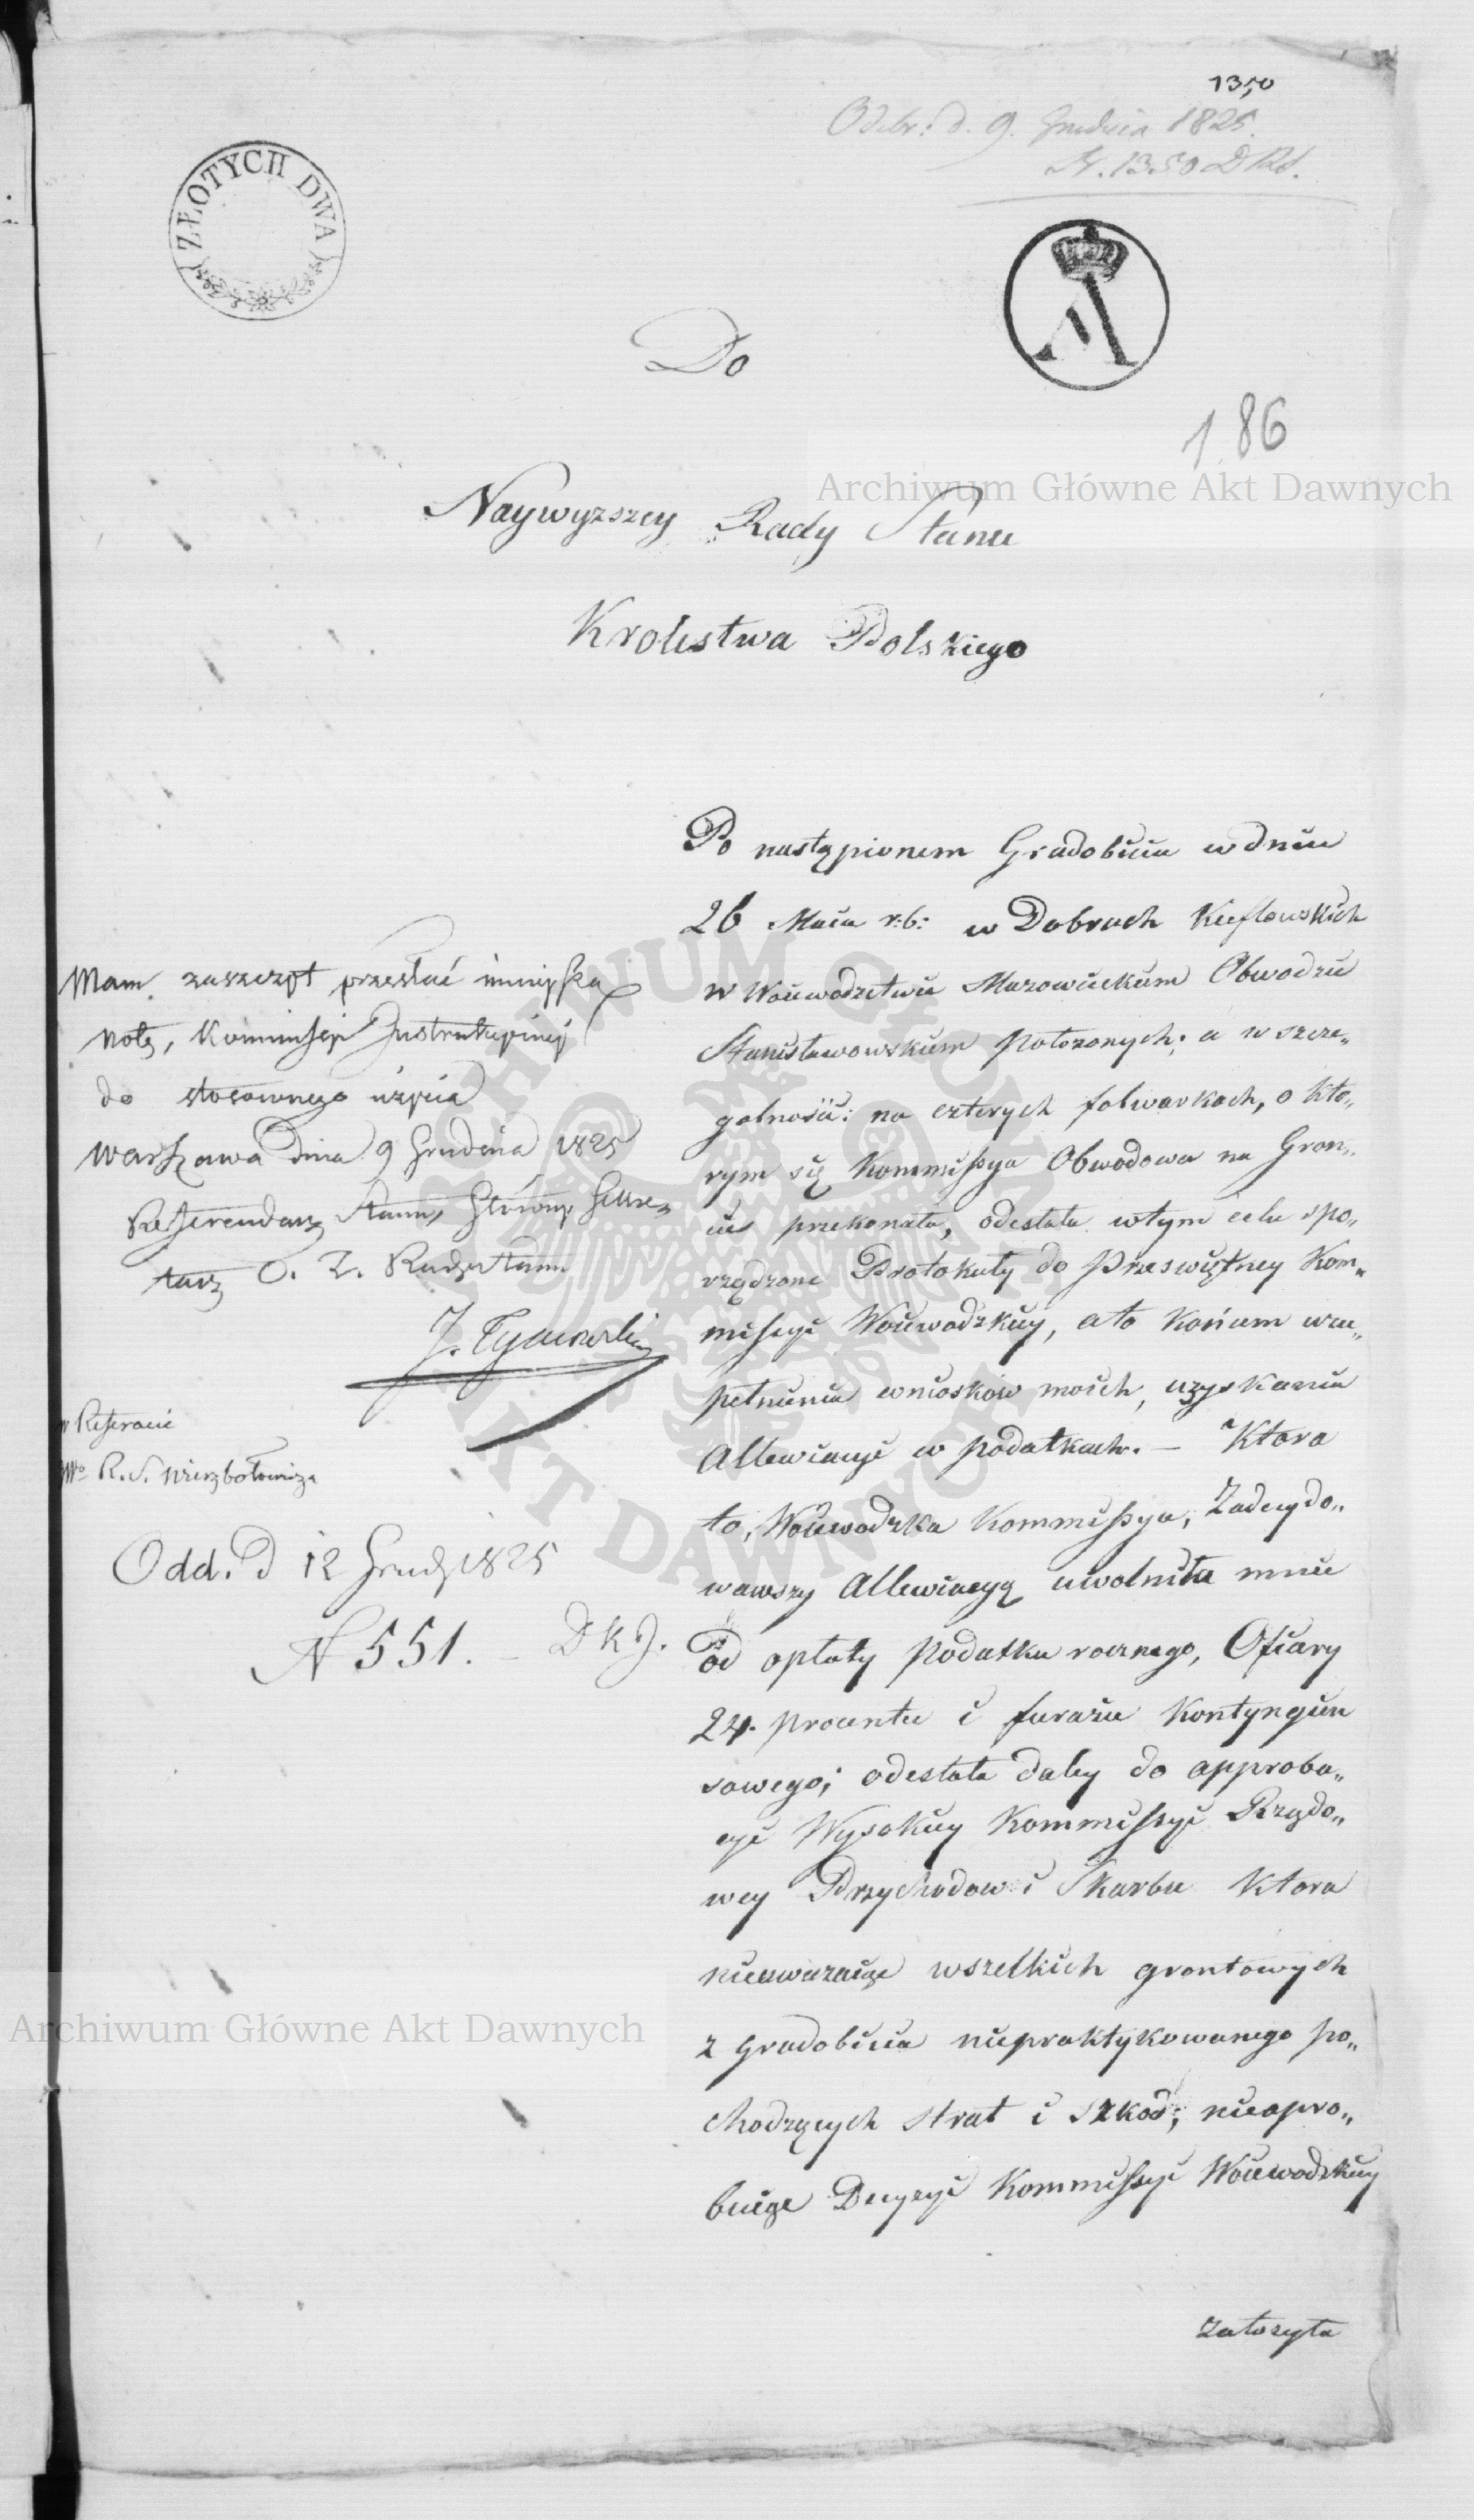 1350
Odebr: d. 9. Grudnia 1825.
N. 1350 D Rd.
ZŁOTYCH DWA
A
186
Do
Naywyzszey Rady Stanu
Krolestwa Polskiego
Po nastąpionem Gradobiciu w dniu
26 Maia r:b: w Dobrach Kieflowskich
w Woiewodztwie Mazowieckiem Obwodzie
Stanisławowskiem położonych; a w szcze„
golności: na czterych folwarkach, o kto„
rym się Kommissya Obwodowa na Gron„
cie przekonała, odesłała wtym celu spo„
rządzone Protokuły do Prześwietney Kom„
missyi Woiewodzkiey, a to końcem wzu„
pełnienia wnioskow moich, uzyskania
Allewiacyi w podatkach. — Ktora
to, Woiewodzka Kommissya, Zadecydo„
wawszy Allewiacyą uwolniła mnie
od opłaty Podatku rocznego, Ofiary
24. procentu i furażu Kontyngien
sowego; odesłała daley do approba„
cyi Wysokiey Kommissyi Rządo„
wey Przychodow i Skarbu Ktora
nieuwazaiąc wszelkich grontowych
z Gradobicia niepraktykowanego po„
chodzących strat i szkod; nieapro„
buiąc Decyzyi Kommissyi Woiewodzkiey
założyła
Mam zaszczyt przesłać ninieyszą
notę, Kommissyi Instrukcyiney
do stosownego użycia
Warszawa dnia 9 Grudnia 1825
Referendarz Stanu, Główny Sekre„
tarz O. Z. Rady Stanu
J. Tymowski
w Referacie
R. S. Wierzbołowicza
Odd. D 12 Grud 1825
N 551. — D K J.
Archiwum Główne Akt Dawnych
ARCHIWUM GŁÓWNE AKT DAWNYCH
Archiwum Główne Akt Dawnych